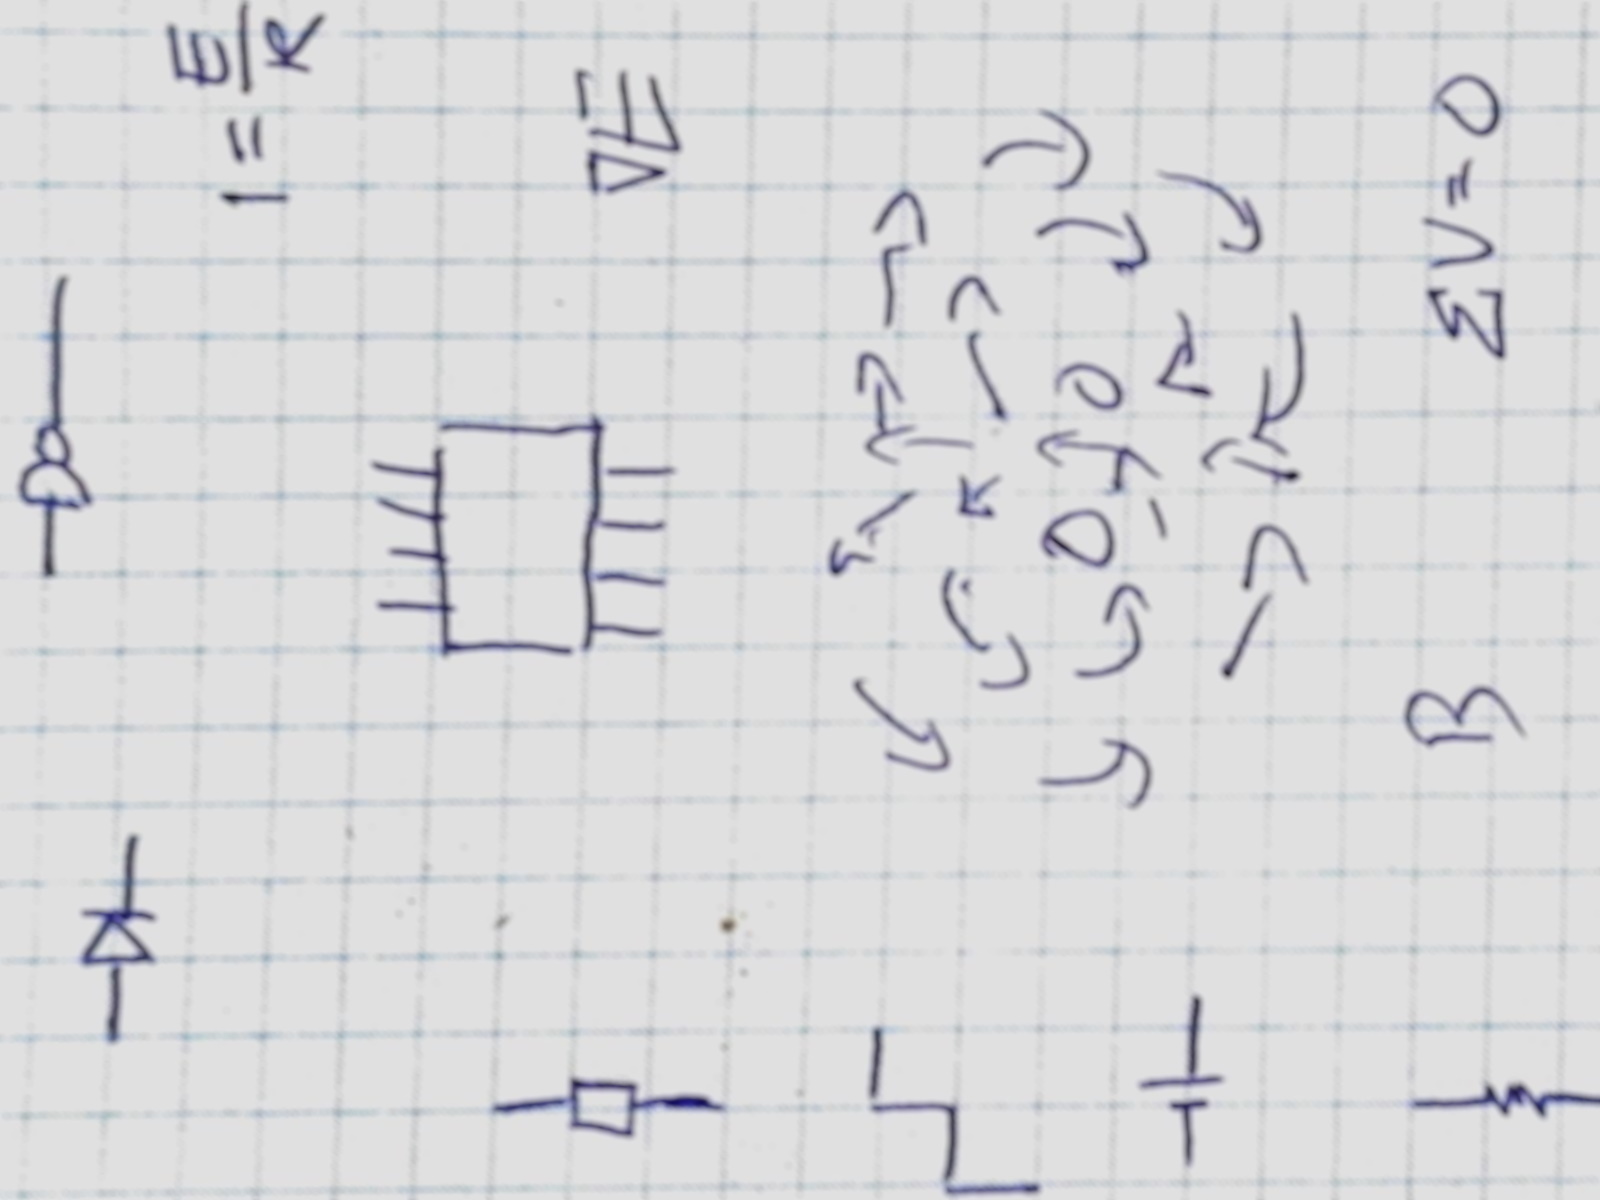 I = E/R
ΣV = 0
B